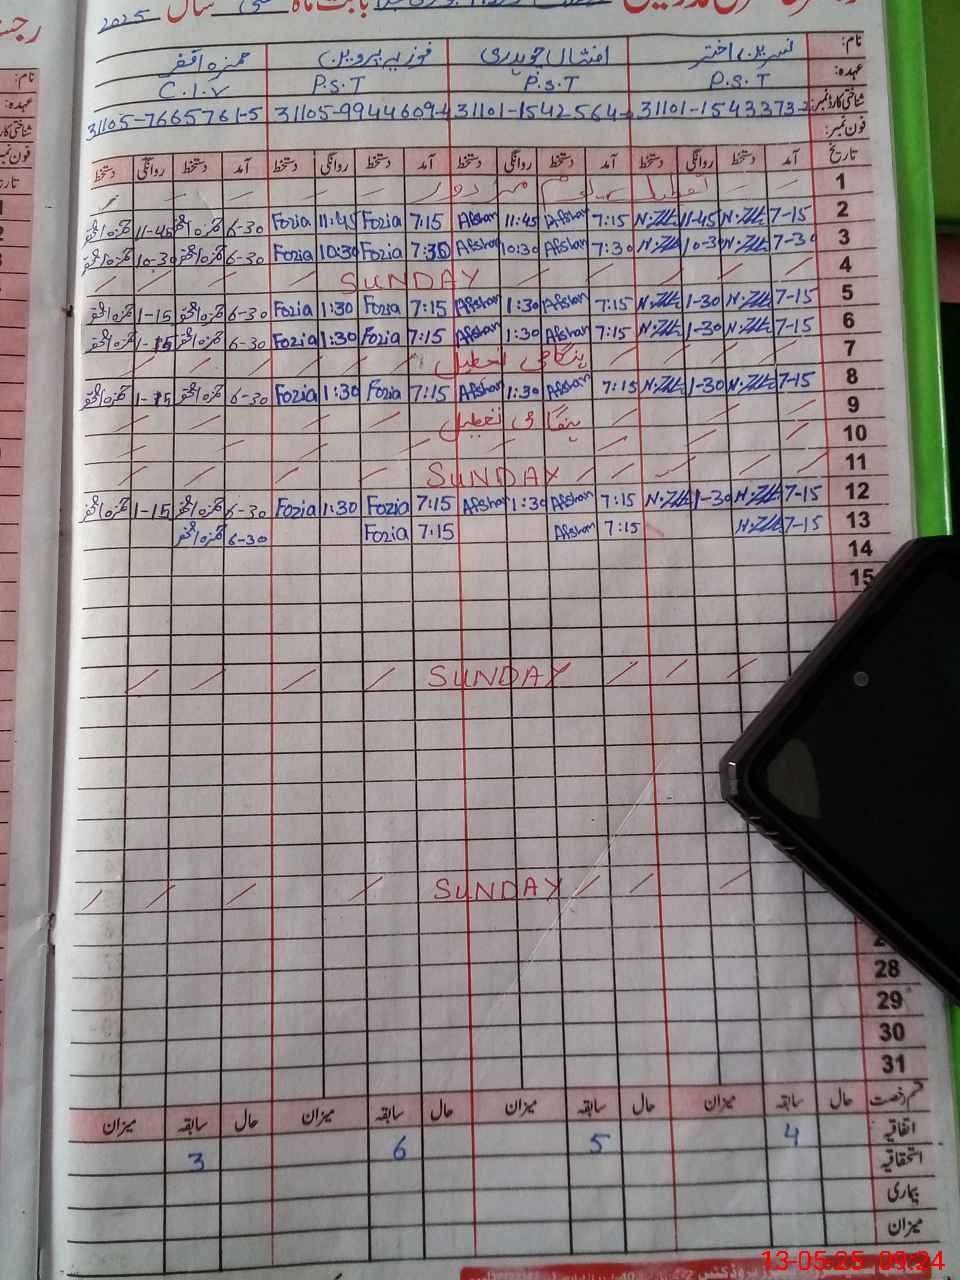 بابت ماہ مئی سال 2025
نام: نسرین اختر افشاں چوہدری فوزیہ پروین حمزہ اصغر
عہدہ: P.S.T P.S.T P.S.T C.I.V
شناختی کارڈ نمبر: 31101-1543373- 31101-1542564- 31105-9944609-4 31105-7665761-5
فون نمبر:
تاریخ آمد دستخط روانگی دستخط آمد دستخط روانگی دستخط آمد دستخط روانگی دستخط آمد دستخط روانگی دستخط
1 تعطیل یوم مزدور
2 7-15 11-45 7:15 Afshan 11:45 Afshan 7:15 Fozia 11:45 Fozia 6-30 11-45
3 7-30 10-30 7:30 Afshan 10:30 Afshan 7:30 Fozia 10:30 Fozia 6-30 10-30
4 SUNDAY
5 7-15 1-30 7:15 Afshan 1:30 Afshan 7:15 Fozia 1:30 Fozia 6-30 1-15
6 7-15 1-30 7:15 Afshan 1:30 Afshan 7:15 Fozia 1:30 Fozia 6-30 1-15
7 ہنگامی تعطیل
8 7-15 1-30 7:15 Afshan 1:30 Afshan 7:15 Fozia 1:30 Fozia 6-30 1-15
9 ہنگامی تعطیل
10
11 SUNDAY
12 7-15 1-30 7:15 Afshan 1:30 Afshan 7:15 Fozia 1:30 Fozia 6-30 1-15
13 7-15 7:15 Afshan 7:15 Fozia 6-30
14
15
SUNDAY
SUNDAY
28
29
30
31
قسم رخصت حال سابقہ میزان حال سابقہ میزان حال سابقہ میزان حال سابقہ میزان
اتفاقیہ 4 5 6 3
استحقاقیہ
بیماری
میزان
13-05-25 09:24